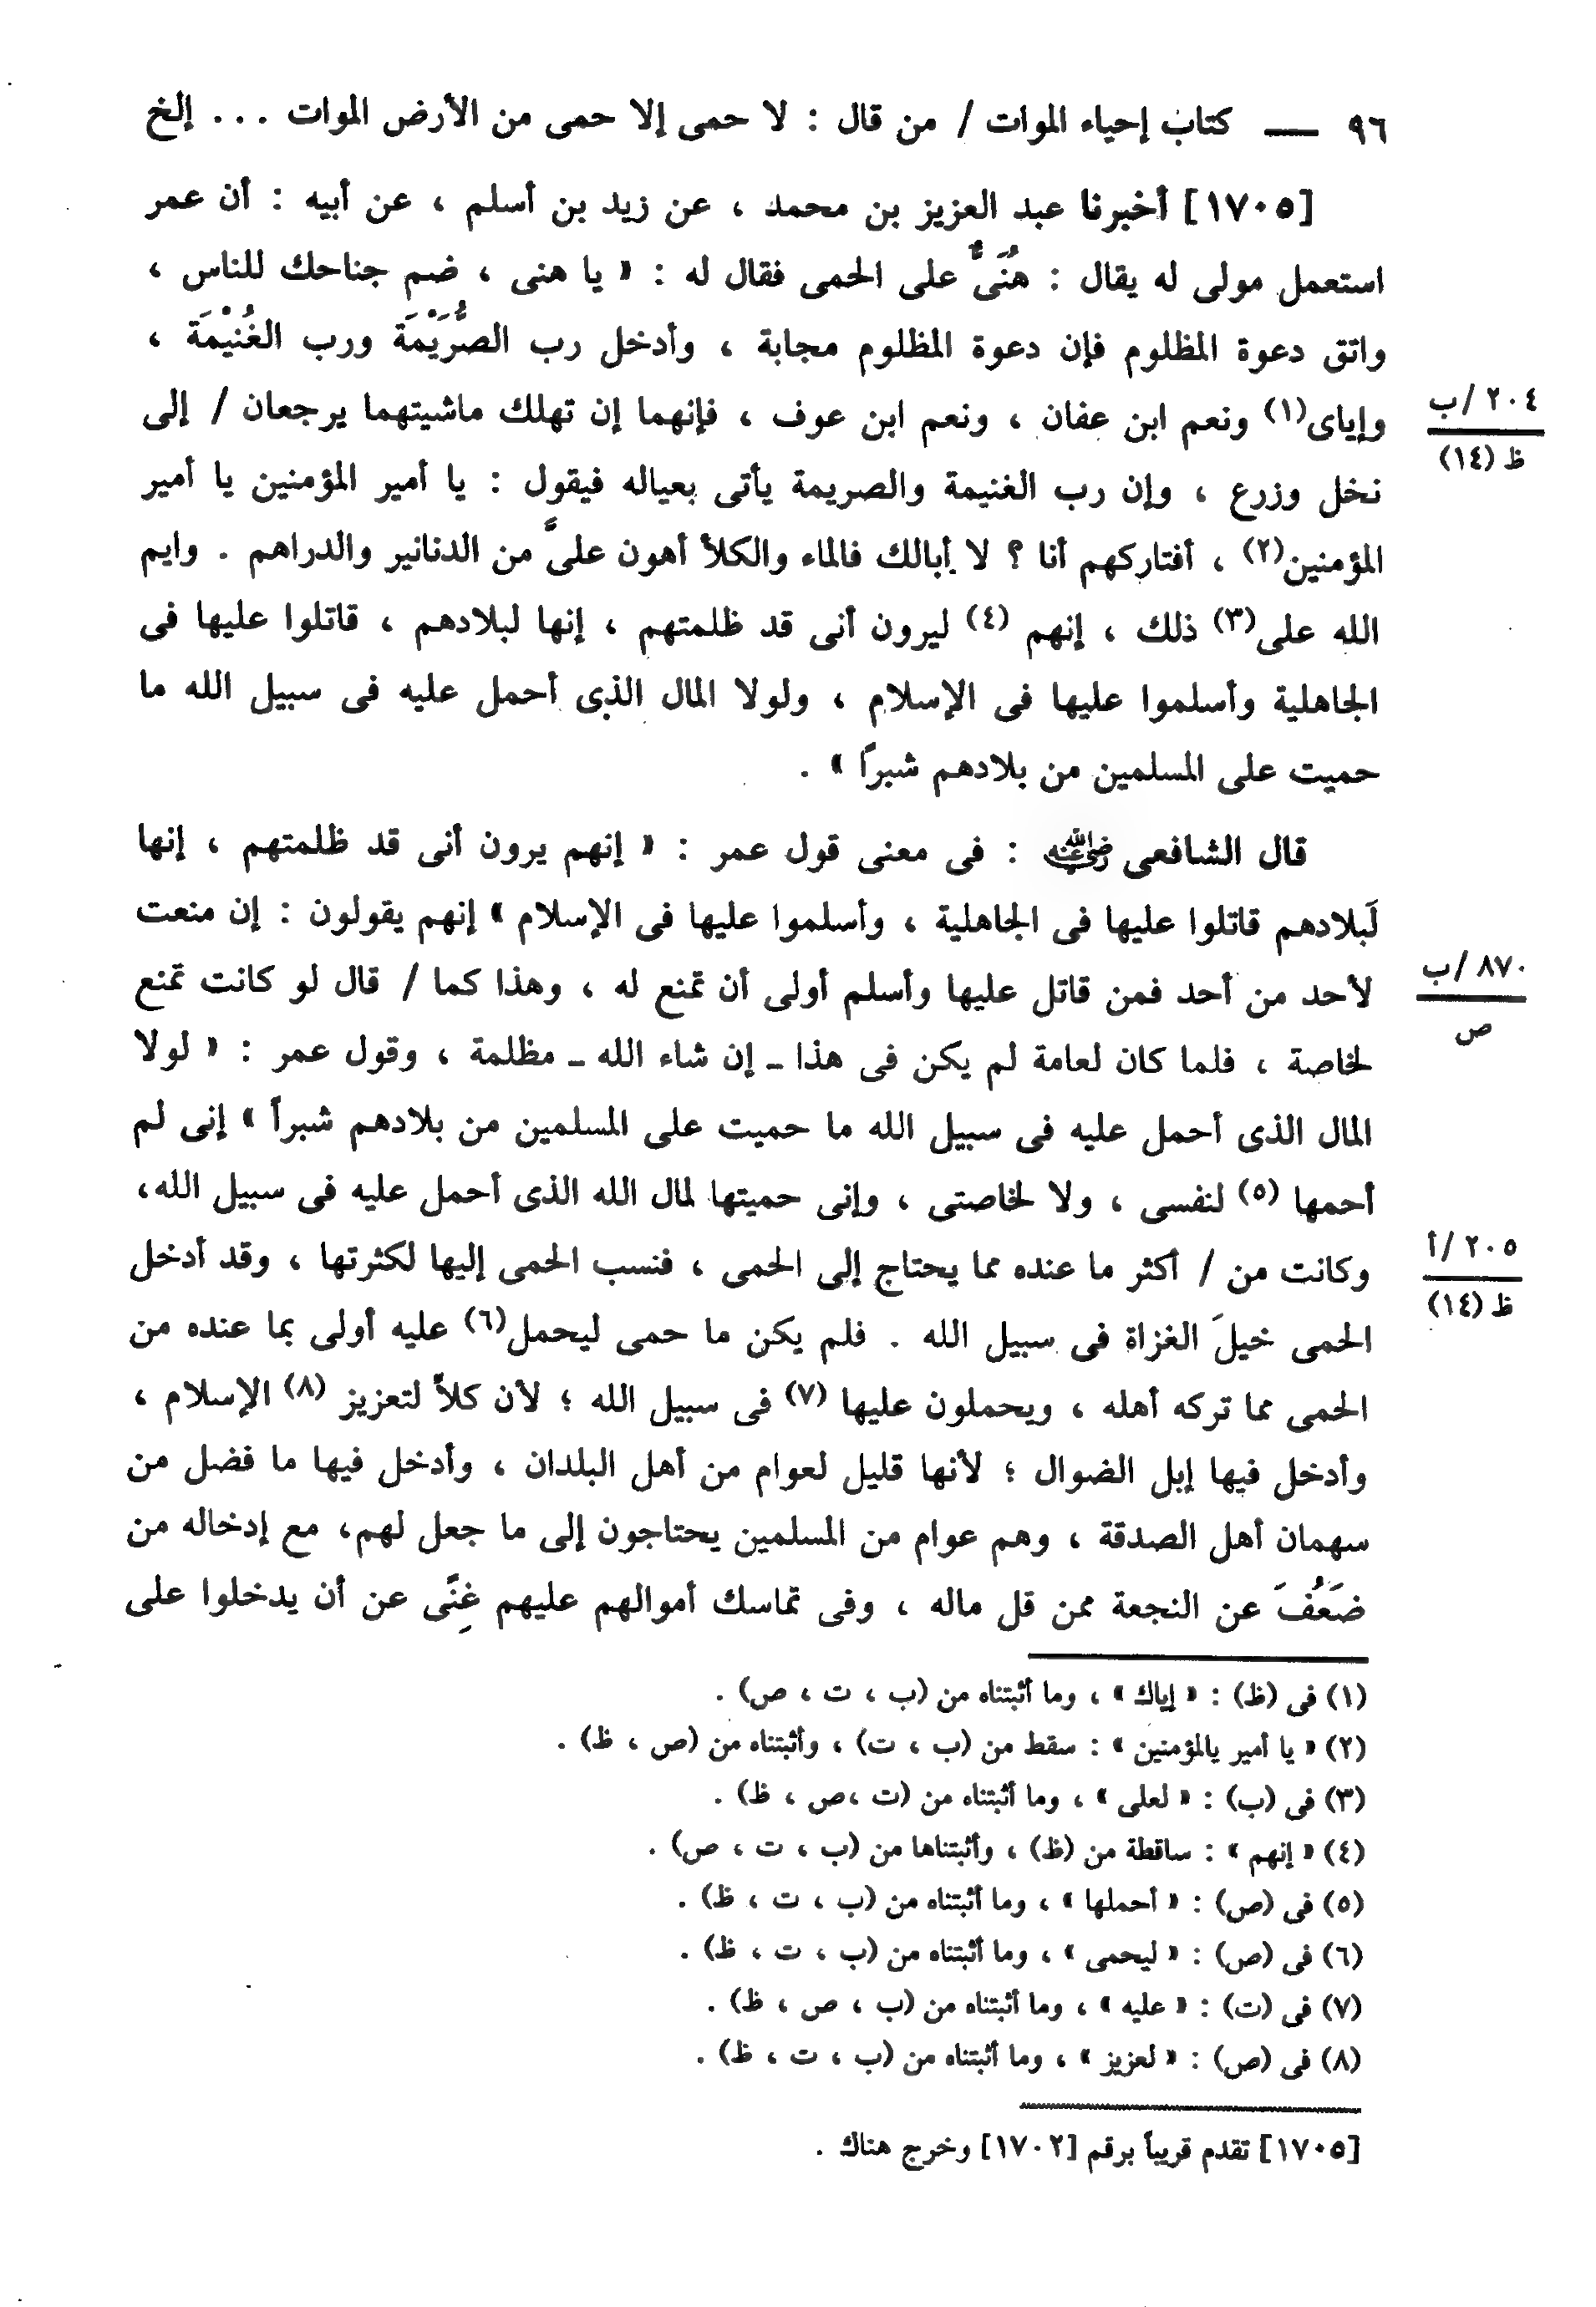 ٩٦ ـــــ كتاب إحياء الموات / من قال : لا حمى إلا حمى من الأرض الموات . . . إلخ
[١٧٠٥] أخبرنا عبد العزيز بن محمد ، عن زيد بن أسلم ، عن أبيه : أن عمر
استعمل مولى له يقال : هُنَىٌّ على الحمى فقال له : « يا هنى ، ضم جناحك للناس ،
واتق دعوة المظلوم فإن دعوة المظلوم مجابة ، وأدخل رب الصُّرَيْمَة ورب الغُنيْمَة ،
وإياى(١) ونعم ابن عفان ، ونعم ابن عوف ، فإنهما إن تهلك ماشيتهما يرجعان / إلى
٢٠٤ /ب
ظ (١٤)
نخل وزرع ، وإن رب الغنيمة والصريمة يأتى بعياله فيقول : يا أمير المؤمنين يا أمير
المؤمنين(٢) ، أفتاركهم أنا ؟ لا أبالك فالماء والكلأ أهون علىَّ من الدنانير والدراهم . وايم
الله على(٣) ذلك ، إنهم (٤) ليرون أنى قد ظلمتهم ، إنها لبلادهم ، قاتلوا عليها فى
الجاهلية وأسلموا عليها فى الإسلام ، ولولا المال الذى أحمل عليه فى سبيل الله ما
حميت على المسلمين من بلادهم شبرًا » .
قال الشافعى رضي الله عنه : فى معنى قول عمر : « إنهم يرون أنى قد ظلمتهم ، إنها
لَبلادهم قاتلوا عليها فى الجاهلية ، وأسلموا عليها فى الإسلام » إنهم يقولون : إن منعت
لأحد من أحد فمن قاتل عليها وأسلم أولى أن تمنع له ، وهذا كما / قال لو كانت تمنع
٨٧٠ /ب
ص
لخاصة ، فلما كان لعامة لم يكن فى هذا ـ إن شاء الله ـ مظلمة ، وقول عمر : « لولا
المال الذى أحمل عليه فى سبيل الله ما حميت على المسلمين من بلادهم شبراً » إنى لم
أحمها (٥) لنفسى ، ولا لخاصتى ، وإنى حميتها لمال الله الذى أحمل عليه فى سبيل الله،
وكانت من / أكثر ما عنده مما يحتاج إلى الحمى ، فنسب الحمى إليها لكثرتها ، وقد أدخل
٢٠٥ /أ
ظ (١٤)
الحمى خيلَ الغزاة فى سبيل الله . فلم يكن ما حمى ليحمل(٦) عليه أولى بما عنده من
الحمى مما تركه أهله ، ويحملون عليها (٧) فى سبيل الله ؛ لأن كلاً لتعزيز (٨) الإسلام ،
وأدخل فيها إبل الضوال ؛ لأنها قليل لعوام من أهل البلدان ، وأدخل فيها ما فضل من
سهمان أهل الصدقة ، وهم عوام من المسلمين يحتاجون إلى ما جعل لهم، مع إدخاله من
ضَعُفَ عن النجعة ممن قل ماله ، وفى تماسك أموالهم عليهم غِنًى عن أن يدخلوا على
(١) فى (ظ) : « إياك » ، وما أثبتناه من (ب ، ت ، ص) .
(٢) « يا أمير يالمؤمنين » : سقط من (ب ، ت) ، وأثبتناه من (ص ، ظ) .
(٣) فى (ب) : « لعلى » ، وما أثبتناه من (ت ،ص ، ظ) .
(٤) « إنهم » : ساقطة من (ظ) ، وأثبتناها من (ب ، ت ، ص) .
(٥) فى (ص) : « أحملها » ، وما أثبتناه من (ب ، ت ، ظ) .
(٦) فى (ص) : « ليحمى » ، وما أثبتناه من (ب ، ت ، ظ) .
(٧) فى (ت) : « عليه » ، وما أثبتناه من (ب ، ص ، ظ) .
(٨) فى (ص) : « لعزيز » ، وما أثبتناه من (ب ، ت ، ظ) .
[١٧٠٥] تقدم قريباً برقم [١٧٠٢] وخرج هناك .